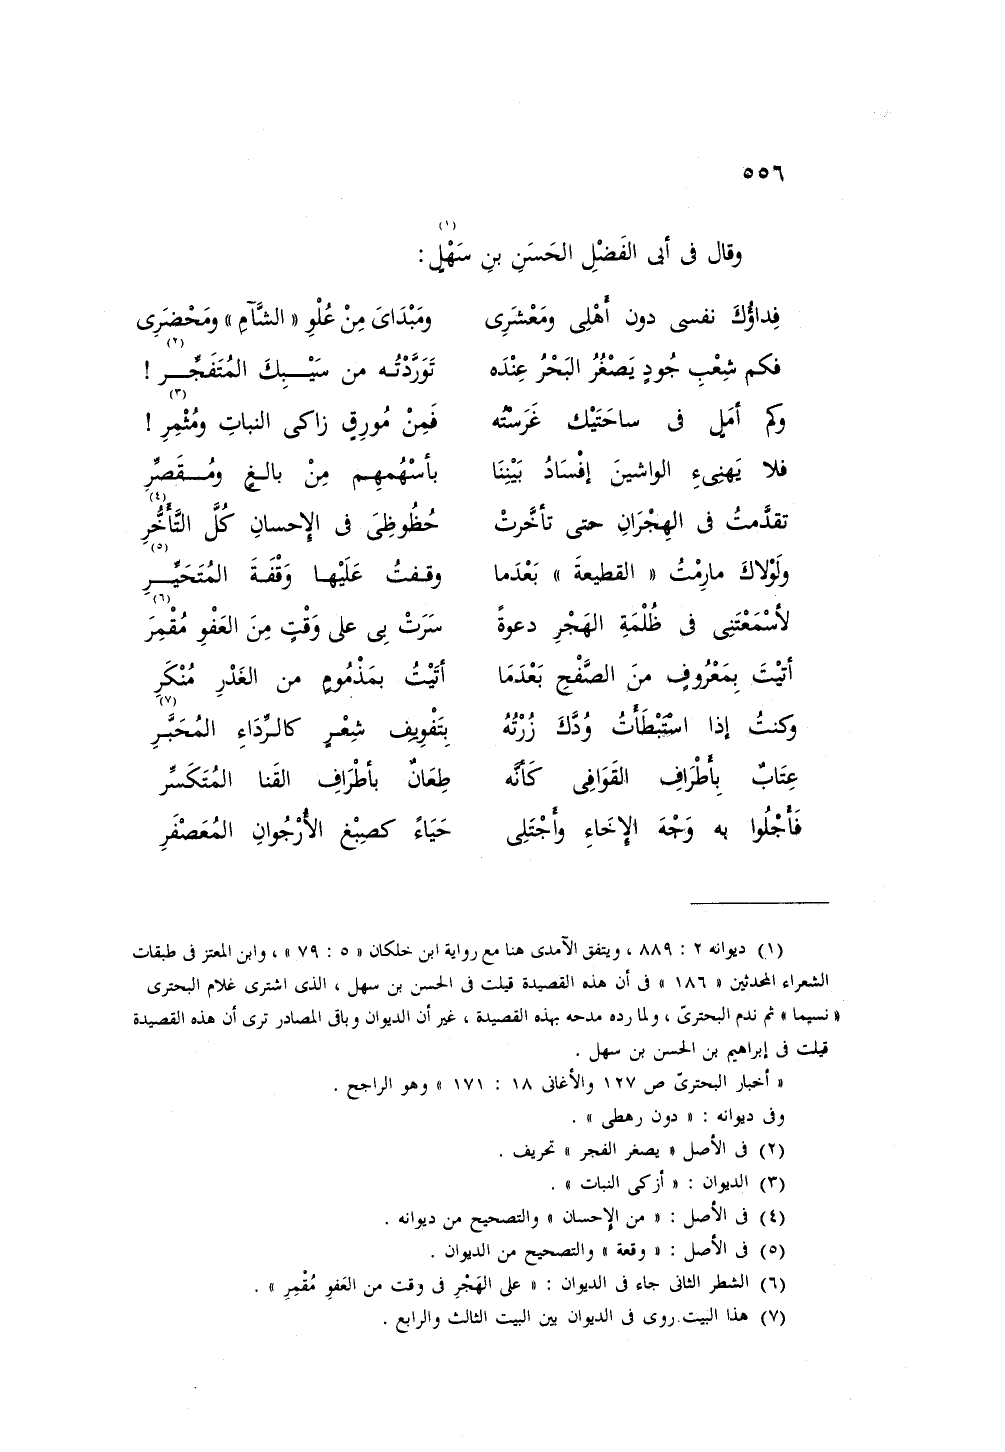 ٥٥٦
(١)
وقال فى أبى الفَضْلِ الحَسَنِ بنِ سَهْلٍ :
فِداؤُكَ نفسى دون أَهْلِى ومَعْشَرِى ومَبْدَاىَ مِنْ عُلْوِ « الشَّآمِ » ومَحْضَرِى
(٢)
فكم شِعْبِ جُودٍ يَصْغُرُ البَحْرُ عِنْدَه تَوَرَّدْتُه من سَيْبِكَ المُتَفَجِّرِ !
(٣)
وكم أمَلٍ فى ساحَتَيْك غَرَسْتُه فَمِنْ مُورِقٍ زاكى النباتِ ومُثْمِرِ !
فلا يَهنِىءِ الواشينَ إفْسَادُ بَيْنِنَا بأسْهُمِهِم مِنْ بالغٍ ومُقَصِّرِ
(٤)
تقدَّمتُ فى الهِجْرَانِ حتى تأخَّرتْ حُظُوظِىَ فى الإحسانِ كُلَّ التَّأَخُّرِ
(٥)
ولَوْلاكَ مارِمْتُ « القطيعةَ » بَعْدَما وقفتُ عَلَيْها وَقْفَةَ المُتَحَيِّرِ
(٦)
لأسْمَعْتَنِى فى ظُلْمَةِ الهَجْرِ دعوةً سَرَتْ بِى على وَقْتٍ مِنَ العَفْوِ مُقْمِرَ
أتيْتَ بِمَعْرُوفٍ منَ الصَّفْحِ بَعْدَمَا أتَيْتُ بمَذْمُومٍ من الغَدْرِ مُنْكَرِ
(٧)
وكنتُ إذا اسْتَبْطَأتُ وُدَّكَ زُرْتُهُ بِتَفْوِيفِ شِعْرٍ كالرِّدَاءِ المُحَبَّرِ
عِتَابٌ بِأَطْرَافِ القَوَافِى كَأنَّه طِعَانٌ بأطْرَافِ القَنا المُتَكَسِّرِ
فَأَجْلُوا به وَجْهَ الإخَاءِ وأَجْتَلِى حَيَاءً كصِبْغِ الأُرْجُوانِ المُعَصْفَرِ
(١) ديوانه ٢ : ٨٨٩ ، ويتفق الآمدى هنا مع رواية ابن خلكان « ٥ : ٧٩ » ، وابن المعتز فى طبقات
الشعراء المحدثين « ١٨٦ » فى أن هذه القصيدة قيلت فى الحسن بن سهل ، الذى اشترى غلام البحترى
« نسيما » ثم ندم البحترىّ ، ولما رده مدحه بهذه القصيدة ، غير أن الديوان وباقى المصادر ترى أن هذه القصيدة
قيلت فى إبراهيم بن الحسن بن سهل .
« أخبار البحترىّ ص ١٢٧ والأغانى ١٨ : ١٧١ » وهو الراجح .
وفى ديوانه : « دون رهطى » .
(٢) فى الأصل « يصغر الفجر » تحريف .
(٣) الديوان : « أزكى النبات » .
(٤) فى الأصل : « من الإحسان » والتصحيح من ديوانه .
(٥) فى الأصل : « وقعة » والتصحيح من الديوان .
(٦) الشطر الثانى جاء فى الديوان : « على الهَجْرِ فى وقت من العَفوِ مُقْمِرِ » .
(٧) هذا البيت روى فى الديوان بين البيت الثالث والرابع .